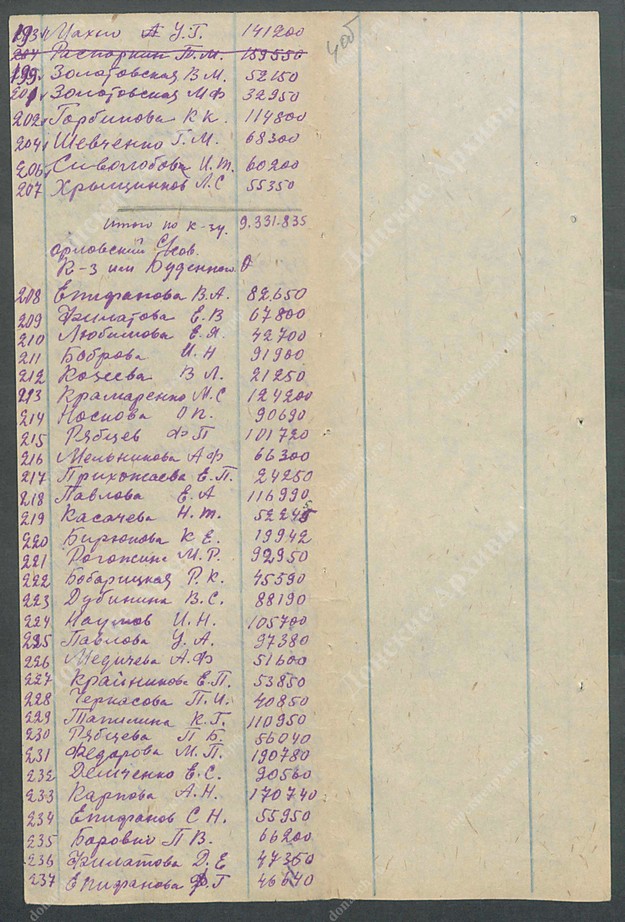 193 Цахно А У.Г. 141200
204 Распоркин П.М. 159550
405
199 Золотовская В.М. 52150
201 Золотовская М Ф 32950
202 Горбинова К К. 114800
204 Шевченко Г.М. 68300
206 Сивоглобова И.т. 60200
207 Хрыщинков Л.С 55350
Итого по к-зу. 9.331.835
Орловский С/сов.
К-з им Буденного
208 Епифанова В.А. 82650
209 Филатова Е.В 67800
210 Любимова Е.Я. 42700
211 Боброва И.Н 91900
212 В Л. 21250
213 Крамаренко М.С 124200
214 Носкова О П. 90690
215 Рябцев Ф.П 101720
216 Мельникова А Ф 66300
217 Прихожаева Е.П. 24250
218 Павлова Е.А 116990
219 Касачева Н.т. 52245
220 Бирюкова К Е. 19942
221 Рогожин М.Р. 92950
222 Бобарицкая Р.К. 45590
223 Дубинина В.С. 88190
224 Наумов И.Н. 105700
225 Павлова У.А. 97380
226 Медичева А.Ф 51600
227 Крайникова Е.П. 53850
228 Черкасова П.И. 40850
229 Тапилина К.Г. 110950
230 Рябцева П Б. 56040
231 Федарова М.П. 190780
232 Демченко Е.С. 90560
233 Карпова А.Н. 170740
234 Епифанов С Н. 55950
235 Боровко П В. 66200
236 Филатова Д.Е 47350
237 Епифанова Ф.Г 46640